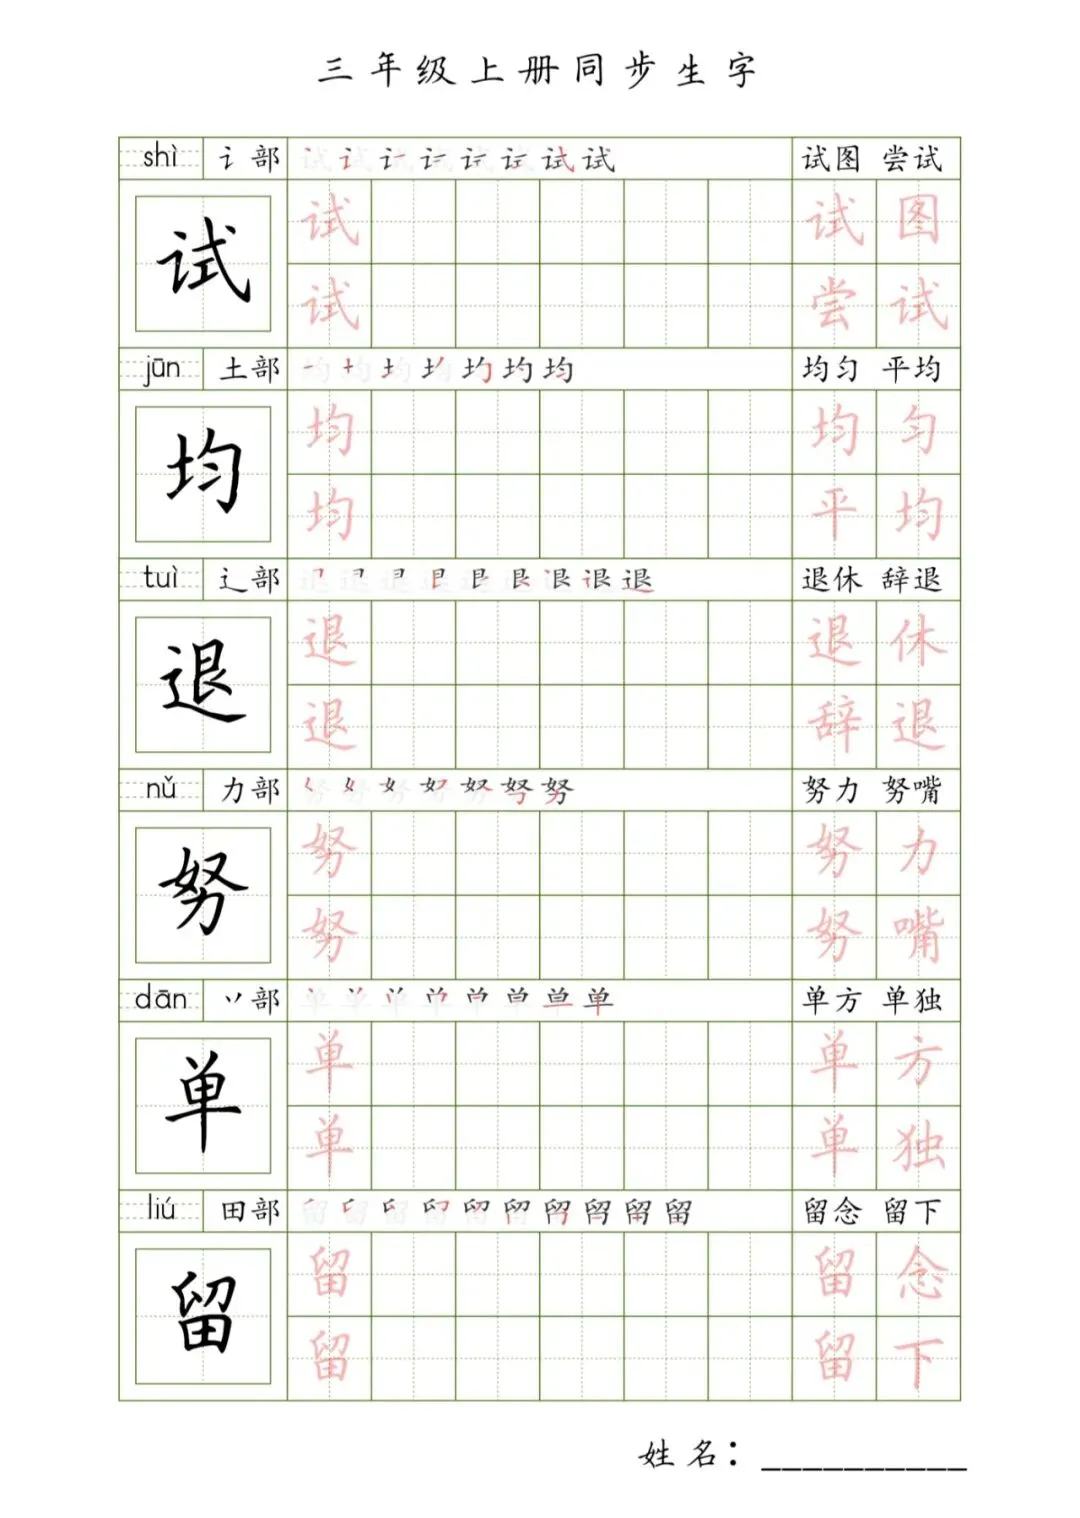 三年级上册同步生字
shì 讠部 试图 尝试
试 试 试图
试 尝试
jūn 土部 均匀 平均
均 均 均匀
均 平均
tuì 辶部 退休 辞退
退 退 退休
退 辞退
nǔ 力部 努力 努嘴
努 努 努力
努 努嘴
dān 丷部 单方 单独
单 单 单方
单 单独
liú 田部 留念 留下
留 留 留念
留 留下
姓名：__________